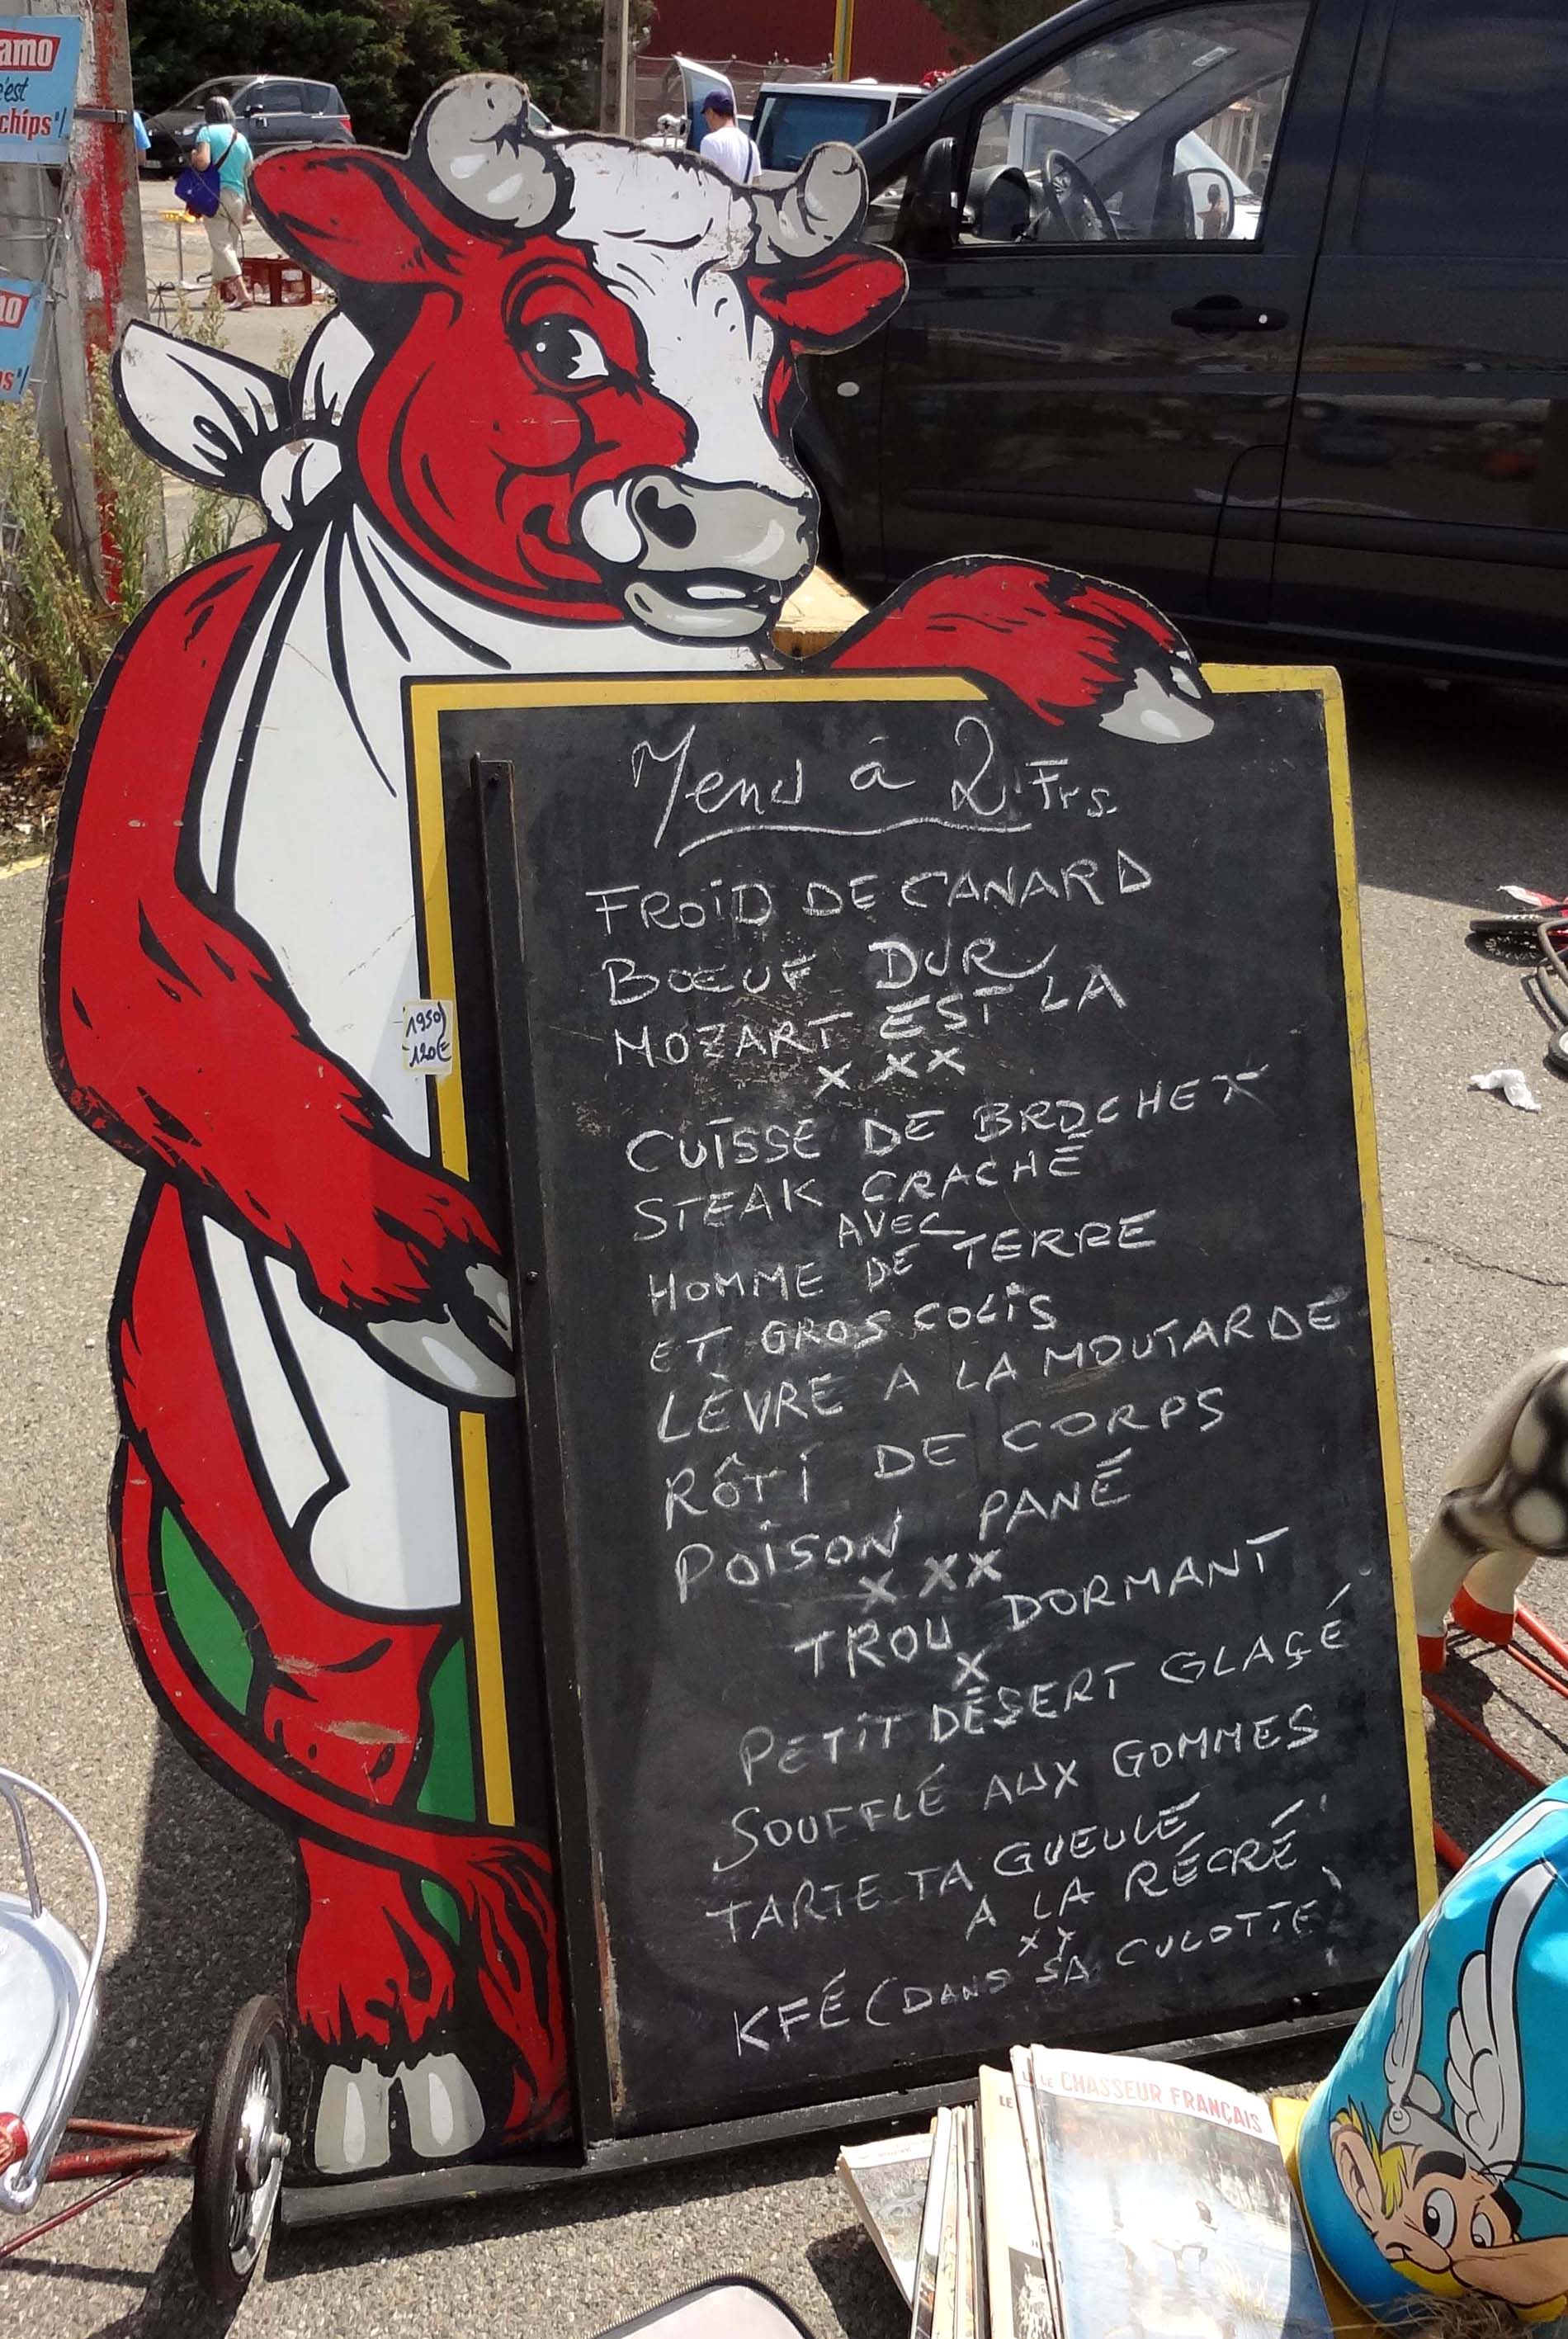 amo
c'est
chips'!
Menu à 2 Frs.
FROID DE CANARD
BŒUF DUR
MOZART EST LA
x x x
CUISSE DE BROCHET
STEAK CRACHÉ
AVEC
HOMME DE TERRE
ET GROS COLIS
LÈVRE A LA MOUTARDE
RÔTI DE CORPS
POISON PANÉ
x x x
TROU DORMANT
x
PETIT DÉSERT GLAÇÉ
SOUFFLÉ AUX GOMMES
TARTE TA GUEULE
A LA RÉCRÉ
x x
KFÉ (DANS SA CULOTTE)
1950
120€
LE CHASSEUR FRANÇAIS
LE